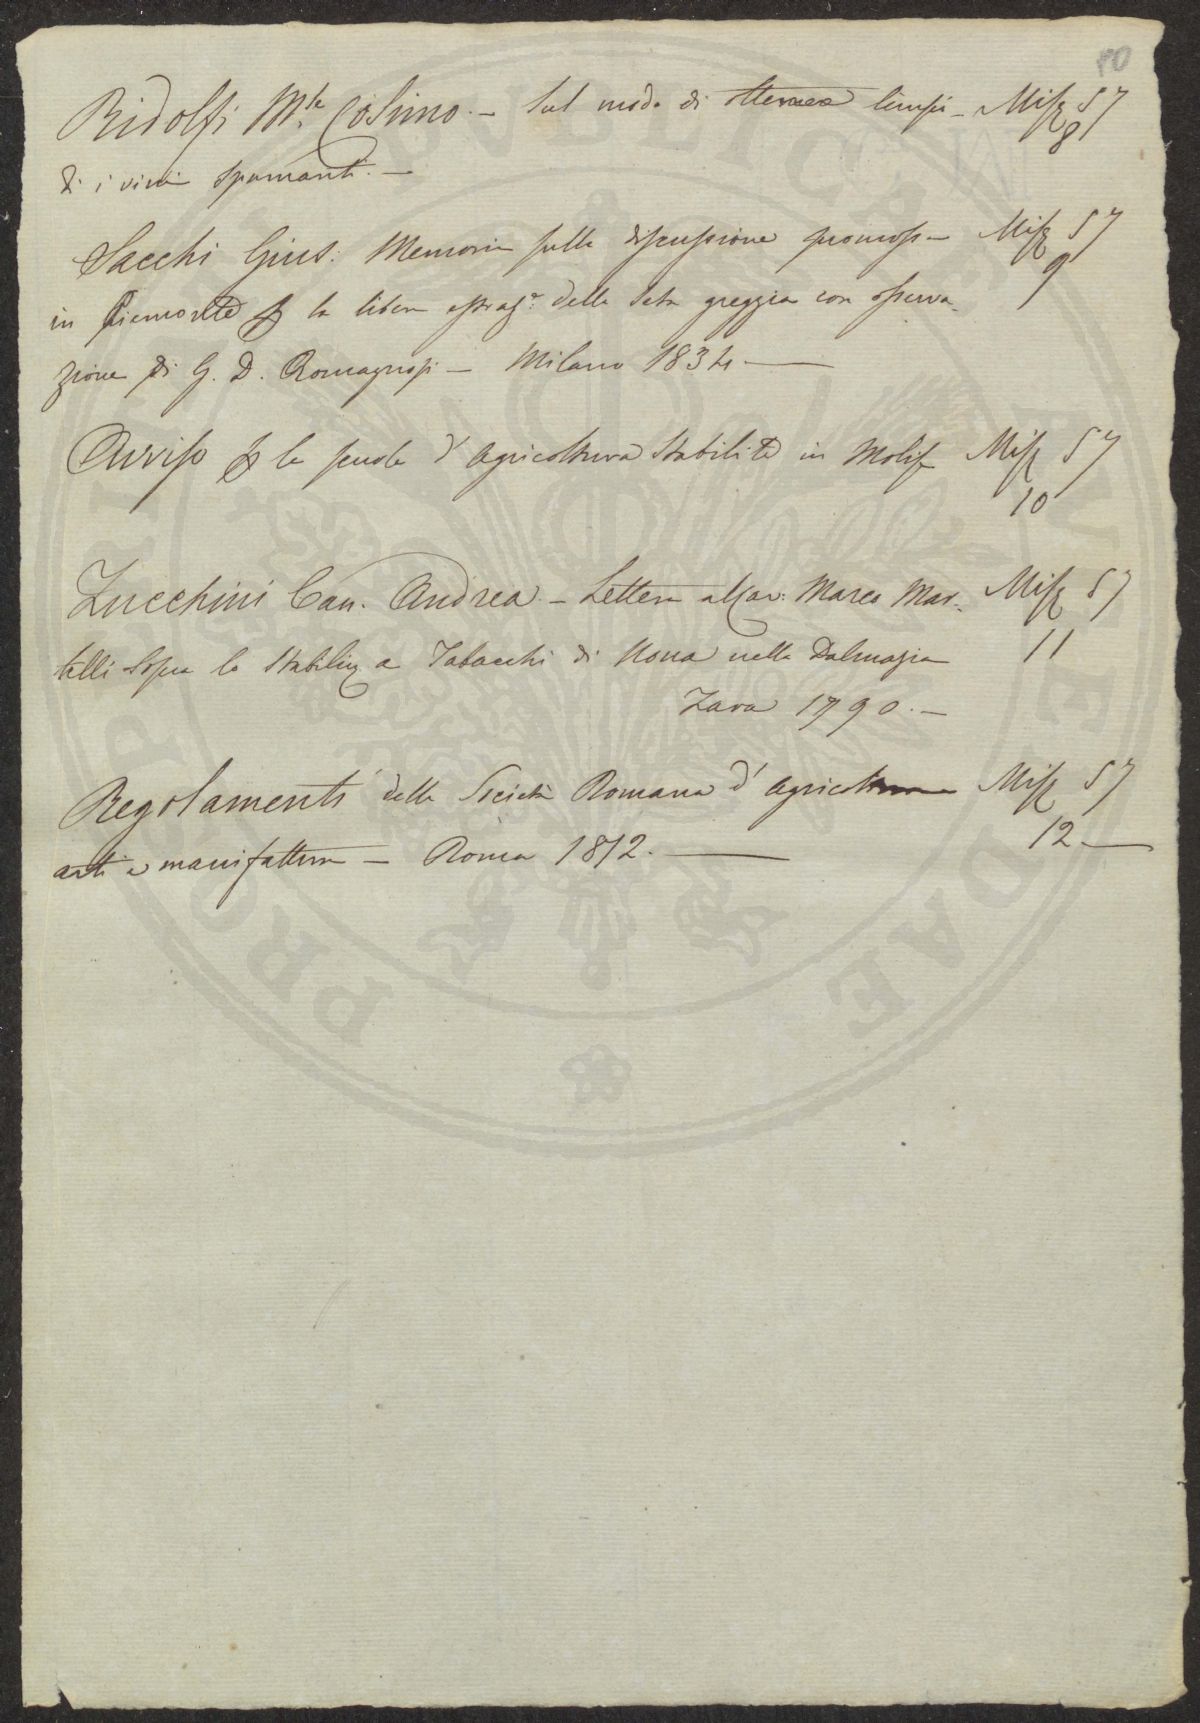 80
Ridolfi M.te Cosimo. - Sul modo di ottenere limpi- Misz 57
8
di i vini spumanti. -
Sacchi Gius: Memoria sulla discussione promossa Misz 57
9
in Piemonte p la libera estraz.e della Seta greggia con osserva
zione di G. D. Romagnosi - Milano 1834. -
Avviso p la scuola d'agricoltura stabilita in Molise Misz 57
10
Zucchini Can. Andrea. - Lettera al Cav: Marco Mar- Misz 57
telli sopra lo Stabilim a Tabacchi di Nona nella Dalmazia 11
Zara 1790. -
Regolamenti della Società Romana d'agricoltura Misz 57
12 -
arti e manifatture - Roma 1812. -